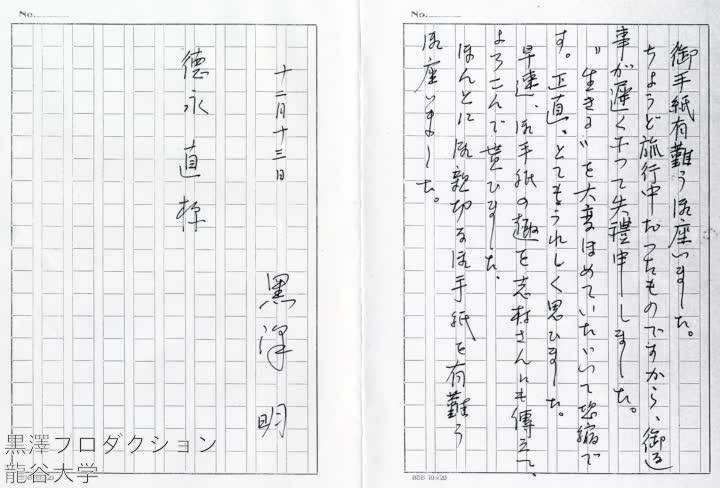 No.
御手紙有難う御座いました。
ちょうど旅行中だったものですから、御返
事が遅くなって失禮申しました。
〝生きる〟を大変ほめていただいて恐縮で
す。正直、とてもうれしく思ひました。
早速、御手紙の趣を志村さんにも傳えて、
よろこんで貰ひました。
ほんとに御親切な御手紙を有難う
御座いました。
BSB 10×20
No.
十二月十三日
黒澤 明
德永 直 様
黒澤プロダクション
龍谷大学